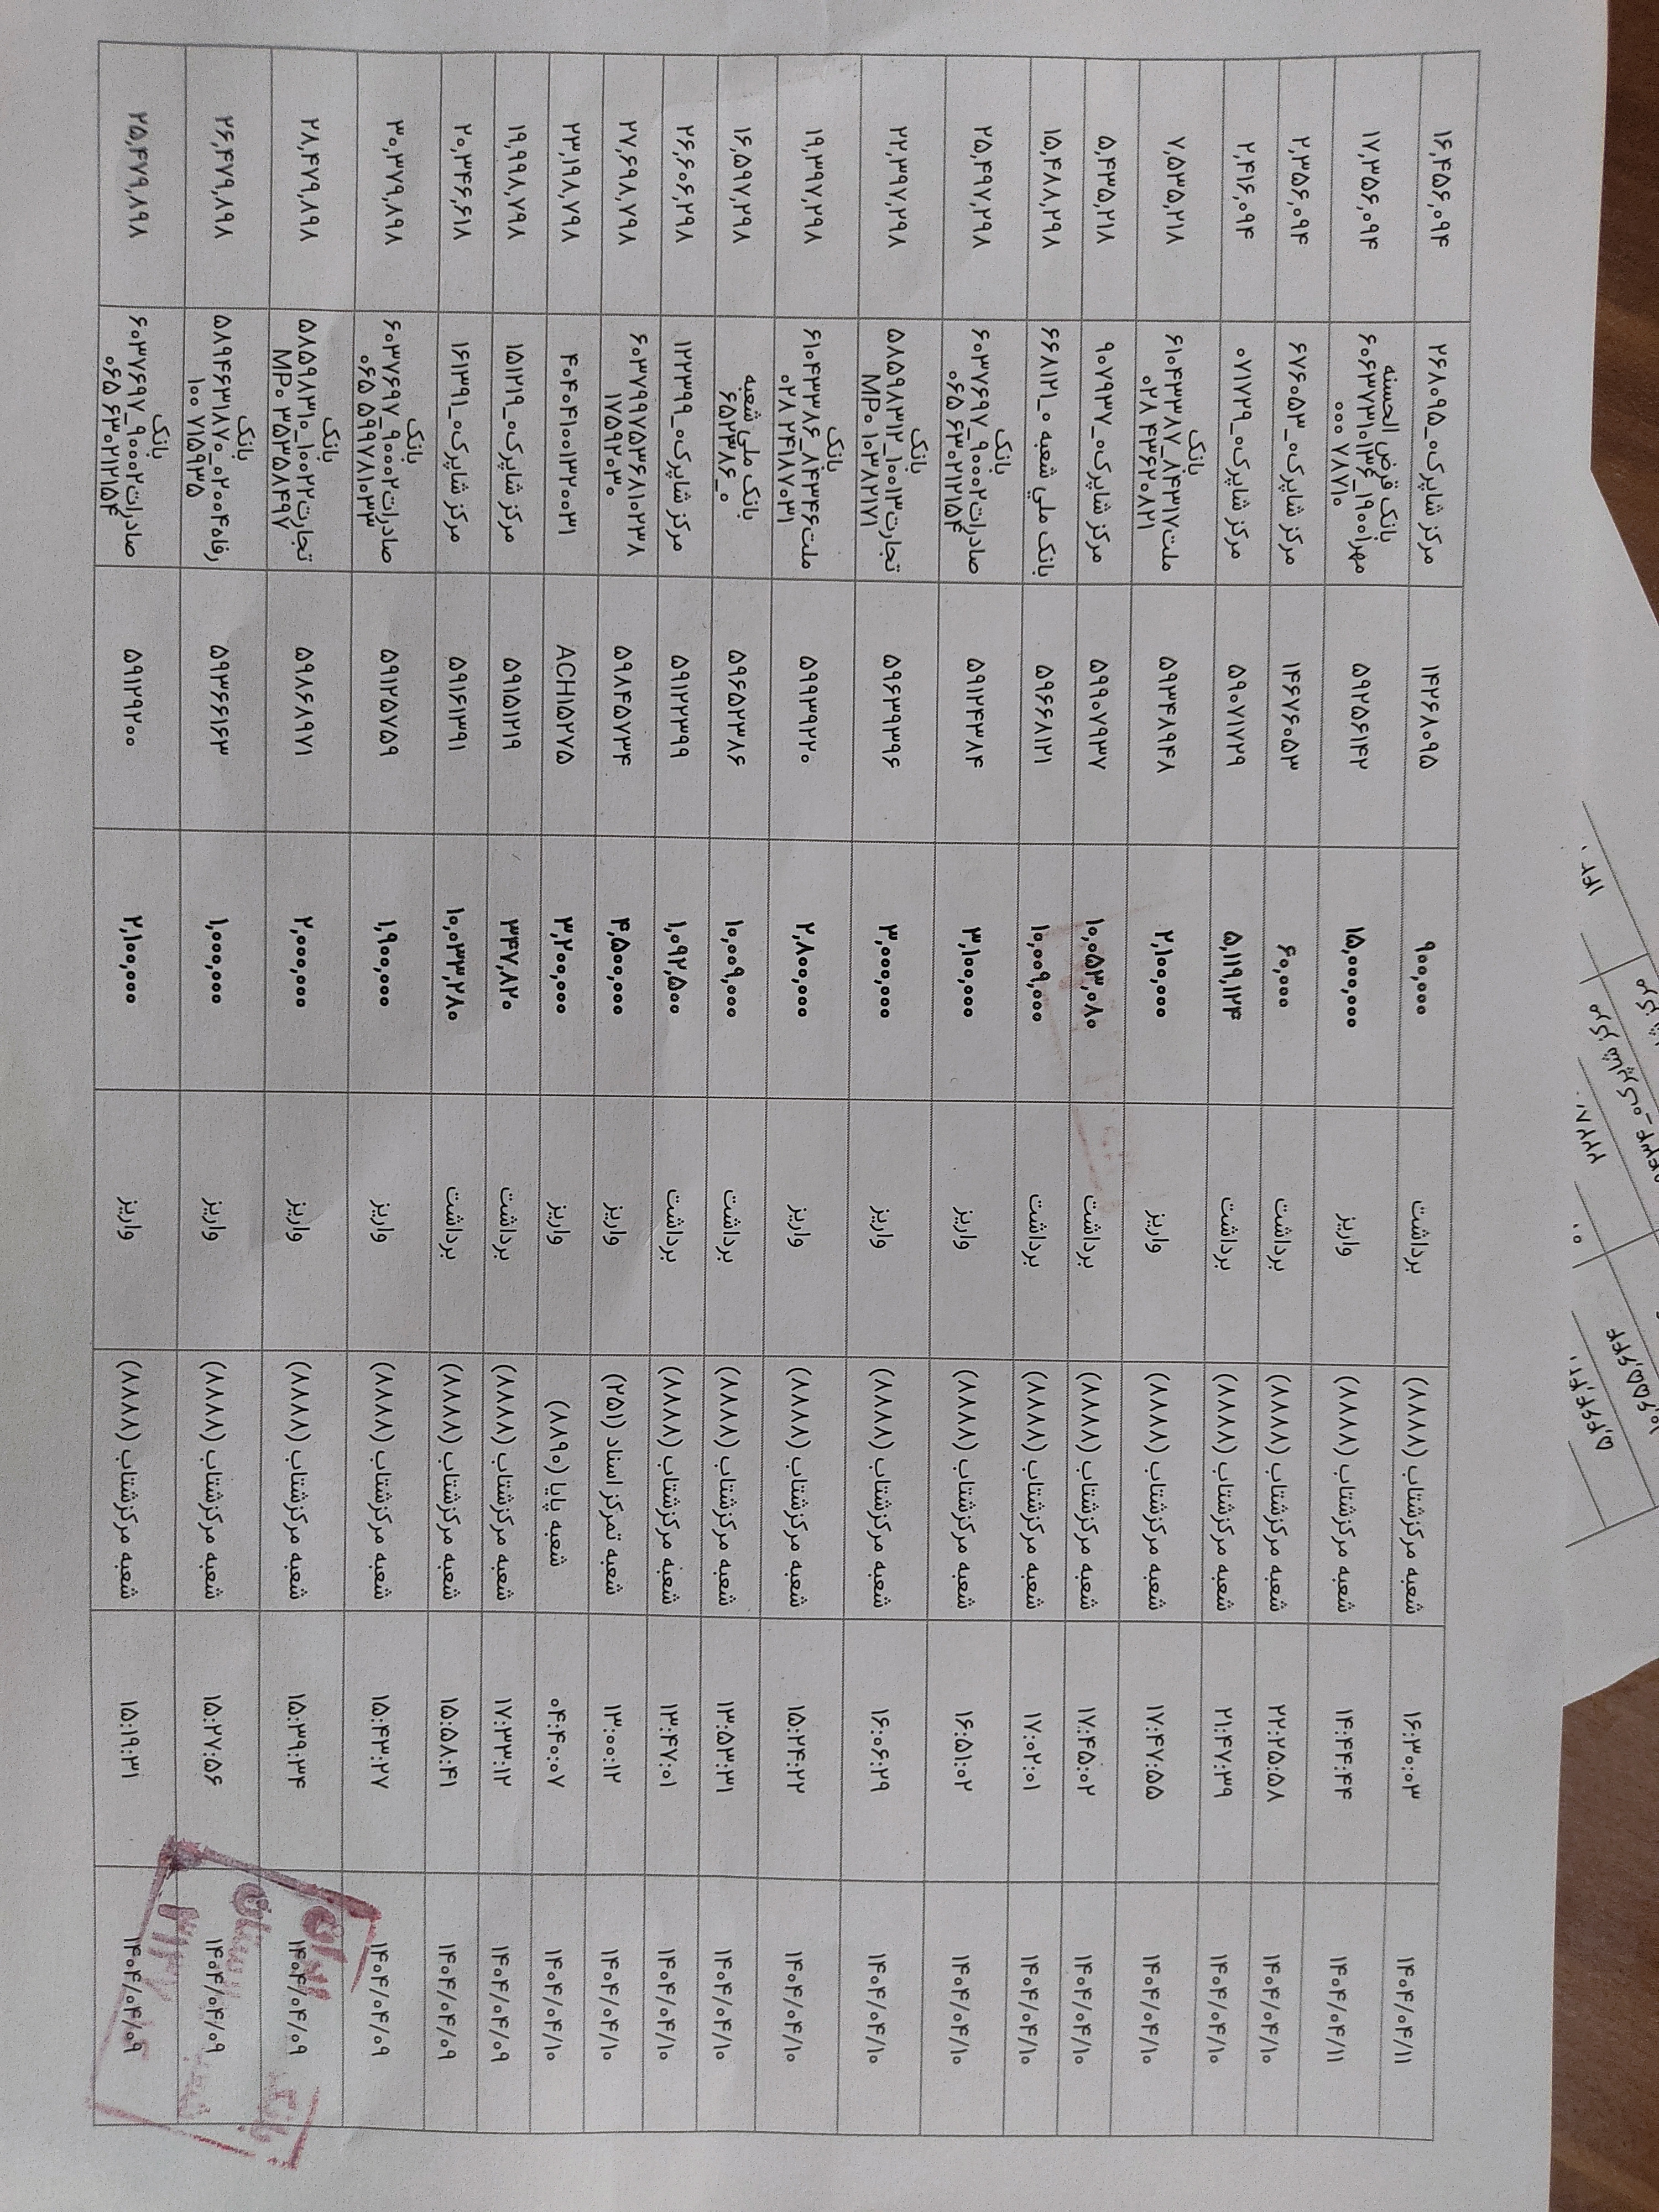 ۱۴۰۴/۰۴/۱۱ ۱۶:۳۰:۰۳ شعبه مرکزشتاب (۸۸۸۸) برداشت ۹۰۰,۰۰۰ ۱۴۲۶۸۰۹۵ مرکز شاپرک۰_۲۶۸۰۹۵ ۱۶,۴۵۶,۰۹۴
۱۴۰۴/۰۴/۱۱ ۱۴:۴۴:۴۴ شعبه مرکزشتاب (۸۸۸۸) واریز ۱۵,۰۰۰,۰۰۰ ۵۹۲۵۶۱۴۲ بانک قرض الحسنه
مهرا۱۹۰۰_۶۰۶۳۷۳۱۰۱۳۶
۰۰۰ ۷۸۷۱۰ ۱۷,۳۵۶,۰۹۴
۱۴۰۴/۰۴/۱۰ ۲۲:۲۵:۵۸ شعبه مرکزشتاب (۸۸۸۸) برداشت ۶۰,۰۰۰ ۱۴۶۷۶۰۵۳ مرکز شاپرک۰_۶۷۶۰۵۳ ۲,۳۵۶,۰۹۴
۱۴۰۴/۰۴/۱۰ ۲۱:۴۷:۳۹ شعبه مرکزشتاب (۸۸۸۸) برداشت ۵,۱۱۹,۱۲۴ ۵۹۰۷۱۷۲۹ مرکز شاپرک۰_۰۷۱۷۲۹ ۲,۴۱۶,۰۹۴
۱۴۰۴/۰۴/۱۰ ۱۷:۴۷:۵۵ شعبه مرکزشتاب (۸۸۸۸) واریز ۲,۱۰۰,۰۰۰ ۵۹۳۴۸۹۴۸ بانک
ملت۸۴۳۱۷_۶۱۰۴۳۳۸۷
۰۲۸ ۴۳۶۲۰۸۲۱ ۷,۵۳۵,۲۱۸
۱۴۰۴/۰۴/۱۰ ۱۷:۴۵:۰۲ شعبه مرکزشتاب (۸۸۸۸) برداشت ۱۰,۰۵۳,۰۸۰ ۵۹۹۰۷۹۳۷ مرکز شاپرک۰_۹۰۷۹۳۷ ۵,۴۳۵,۲۱۸
۱۴۰۴/۰۴/۱۰ ۱۷:۰۲:۰۱ شعبه مرکزشتاب (۸۸۸۸) برداشت ۱۰,۰۰۹,۰۰۰ ۵۹۶۶۸۱۲۱ بانک ملي شعبه ۰_۶۶۸۱۲۱ ۱۵,۴۸۸,۲۹۸
۱۴۰۴/۰۴/۱۰ ۱۶:۵۱:۰۲ شعبه مرکزشتاب (۸۸۸۸) واریز ۳,۱۰۰,۰۰۰ ۵۹۱۲۴۳۸۴ بانک
صادرات۹۰۰۰۲_۶۰۳۷۶۹۷
۰۶۵ ۶۳۰۲۱۲۱۵۴ ۲۵,۴۹۷,۲۹۸
۱۴۰۴/۰۴/۱۰ ۱۶:۰۶:۲۹ شعبه مرکزشتاب (۸۸۸۸) واریز ۳,۰۰۰,۰۰۰ ۵۹۶۳۹۳۹۶ بانک
تجارت۱۰۰۱۳_۵۸۵۹۸۳۱۲
MP۰ ۱۰۳۸۲۱۷۱ ۲۲,۳۹۷,۲۹۸
۱۴۰۴/۰۴/۱۰ ۱۵:۲۴:۲۲ شعبه مرکزشتاب (۸۸۸۸) واریز ۲,۸۰۰,۰۰۰ ۵۹۹۳۹۲۲۰ بانک
ملت۸۴۳۴۶_۶۱۰۴۳۳۸۶
۰۲۸ ۲۴۱۸۷۰۳۱ ۱۹,۳۹۷,۲۹۸
۱۴۰۴/۰۴/۱۰ ۱۳:۵۳:۳۱ شعبه مرکزشتاب (۸۸۸۸) برداشت ۱۰,۰۰۹,۰۰۰ ۵۹۶۵۲۳۸۶ بانک ملي شعبه
۰_۶۵۲۳۸۶ ۱۶,۵۹۷,۲۹۸
۱۴۰۴/۰۴/۱۰ ۱۳:۴۷:۰۱ شعبه مرکزشتاب (۸۸۸۸) برداشت ۱,۰۹۲,۵۰۰ ۵۹۱۲۲۳۹۹ مرکز شاپرک۰_۱۲۲۳۹۹ ۲۶,۶۰۶,۲۹۸
۱۴۰۴/۰۴/۱۰ ۱۳:۰۰:۱۲ شعبه تمرکز اسناد (۲۵۱) واریز ۴,۵۰۰,۰۰۰ ۵۹۸۴۵۷۳۴ ۶۰۳۷۹۹۷۵۳۶۸۱۰۲۳۸
۱۷۵۹۲۰۳۰ ۲۷,۶۹۸,۷۹۸
۱۴۰۴/۰۴/۱۰ ۰۴:۴۰:۰۷ شعبه پایا (۸۸۹۰) واریز ۳,۲۰۰,۰۰۰ ACH۱۵۲۷۵ ۴۰۴۰۴۱۰۰۱۳۲۰۰۳۱ ۲۳,۱۹۸,۷۹۸
۱۴۰۴/۰۴/۰۹ ۱۷:۳۳:۱۲ شعبه مرکزشتاب (۸۸۸۸) برداشت ۳۴۷,۸۲۰ ۵۹۱۵۱۲۱۹ مرکز شاپرک۰_۱۵۱۲۱۹ ۱۹,۹۹۸,۷۹۸
۱۴۰۴/۰۴/۰۹ ۱۵:۵۸:۴۱ شعبه مرکزشتاب (۸۸۸۸) برداشت ۱۰,۰۳۳,۲۸۰ ۵۹۱۶۱۳۹۱ مرکز شاپرک۰_۱۶۱۳۹۱ ۲۰,۳۴۶,۶۱۸
۱۴۰۴/۰۴/۰۹ ۱۵:۴۳:۲۷ شعبه مرکزشتاب (۸۸۸۸) واریز ۱,۹۰۰,۰۰۰ ۵۹۱۲۵۷۵۹ بانک
صادرات۹۰۰۰۲_۶۰۳۷۶۹۷
۰۶۵ ۵۹۹۷۸۱۰۳۳ ۳۰,۳۷۹,۸۹۸
۱۴۰۴/۰۴/۰۹ ۱۵:۳۹:۳۴ شعبه مرکزشتاب (۸۸۸۸) واریز ۲,۰۰۰,۰۰۰ ۵۹۸۶۸۹۷۱ بانک
تجارت۱۰۰۲۲_۵۸۵۹۸۳۱۰
MP۰ ۳۵۳۵۸۴۹۷ ۲۸,۴۷۹,۸۹۸
۱۴۰۴/۰۴/۰۹ ۱۵:۲۷:۵۶ شعبه مرکزشتاب (۸۸۸۸) واریز ۱,۰۰۰,۰۰۰ ۵۹۳۶۶۱۶۳ بانک
رفاه۰۲۰۰۴_۵۸۹۴۶۳۱۸۷۰
۱۰۰ ۷۱۵۹۳۵ ۲۶,۴۷۹,۸۹۸
۱۴۰۴/۰۴/۰۹ ۱۵:۱۹:۳۱ شعبه مرکزشتاب (۸۸۸۸) واریز ۲,۱۰۰,۰۰۰ ۵۹۱۲۹۲۰۰ بانک
صادرات۹۰۰۰۲_۶۰۳۷۶۹۷
۰۶۵ ۶۳۰۲۱۲۱۵۴ ۲۵,۴۷۹,۸۹۸